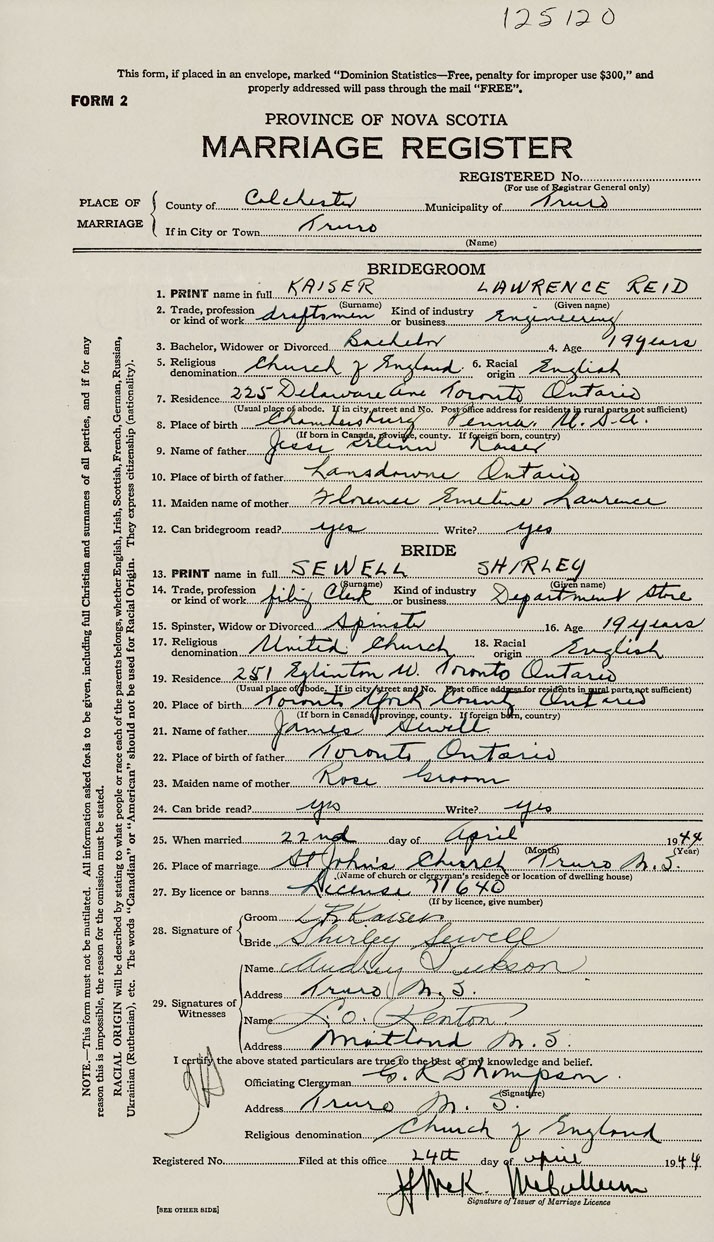 125120
This form, if placed in an envelope, marked "Dominion Statistics—Free, penalty for improper use $300," and
properly addressed will pass through the mail "FREE".
FORM 2
PROVINCE OF NOVA SCOTIA
MARRIAGE REGISTER
REGISTERED No.
(For use of Registrar General only)
PLACE OF MARRIAGE
County of Colchester Municipality of Truro
If in City or Town Truro
(Name)
BRIDEGROOM
1. PRINT name in full KAISER LAWRENCE REID
(Surname) (Given name)
2. Trade, profession or kind of work draftsmen Kind of industry or business Engineering
3. Bachelor, Widower or Divorced Bachelor 4. Age 19 years
5. Religious denomination Church of England 6. Racial origin English
7. Residence 225 Delaware Ave Toronto Ontario
(Usual place of abode. If in city, street and No. Post office address for residents in rural parts not sufficient)
8. Place of birth Chambersburg Penna. U.S.A.
(If born in Canada, province, county. If foreign born, country)
9. Name of father Jesse Kaiser
10. Place of birth of father Lansdowne Ontario
11. Maiden name of mother Florence Emeline Laurence
12. Can bridegroom read? yes Write? yes
BRIDE
13. PRINT name in full SEWELL SHIRLEY
(Surname) (Given name)
14. Trade, profession or kind of work filing Clerk Kind of industry or business Department Store
15. Spinster, Widow or Divorced Spinster 16. Age 19 years
17. Religious denomination United Church 18. Racial origin English
19. Residence 251 Eglinton W. Toronto Ontario
(Usual place of abode. If in city, street and No. Post office address for residents in rural parts, not sufficient)
20. Place of birth Toronto York County Ontario
(If born in Canada, province, county. If foreign born, country)
21. Name of father James Sewell
22. Place of birth of father Toronto Ontario
23. Maiden name of mother Rose Groom
24. Can bride read? yes Write? yes
25. When married 22nd day of April 1944
(Month) (Year)
26. Place of marriage St John's Church Truro N.S.
(Name of church or clergyman's residence or location of dwelling house)
27. By licence or banns License 71640
(If by licence, give number)
28. Signature of
Groom L R Kaiser
Bride Shirley Sewell
29. Signatures of Witnesses
Name Audrey
Address Truro N.S.
Name Kenton
Address Maitland N.S.
I certify the above stated particulars are true to the best of my knowledge and belief.
Officiating Clergyman G. R Thompson
(Signature)
Address Truro N.S.
Religious denomination Church of England
Registered No. Filed at this office 24th day of April 1944
McCullum
Signature of Issuer of Marriage Licence
[SEE OTHER SIDE]
NOTE.—This form must not be mutilated. All information asked for is to be given, including full Christian and surnames of all parties, and if for any
reason this is impossible, the reason for the omission must be stated.
RACIAL ORIGIN will be described by stating to what people or race each of the parents belongs, whether English, Irish, Scottish, French, German, Russian,
Ukrainian (Ruthenian), etc. The words "Canadian" or "American" should not be used for Racial Origin. They express citizenship (nationality).